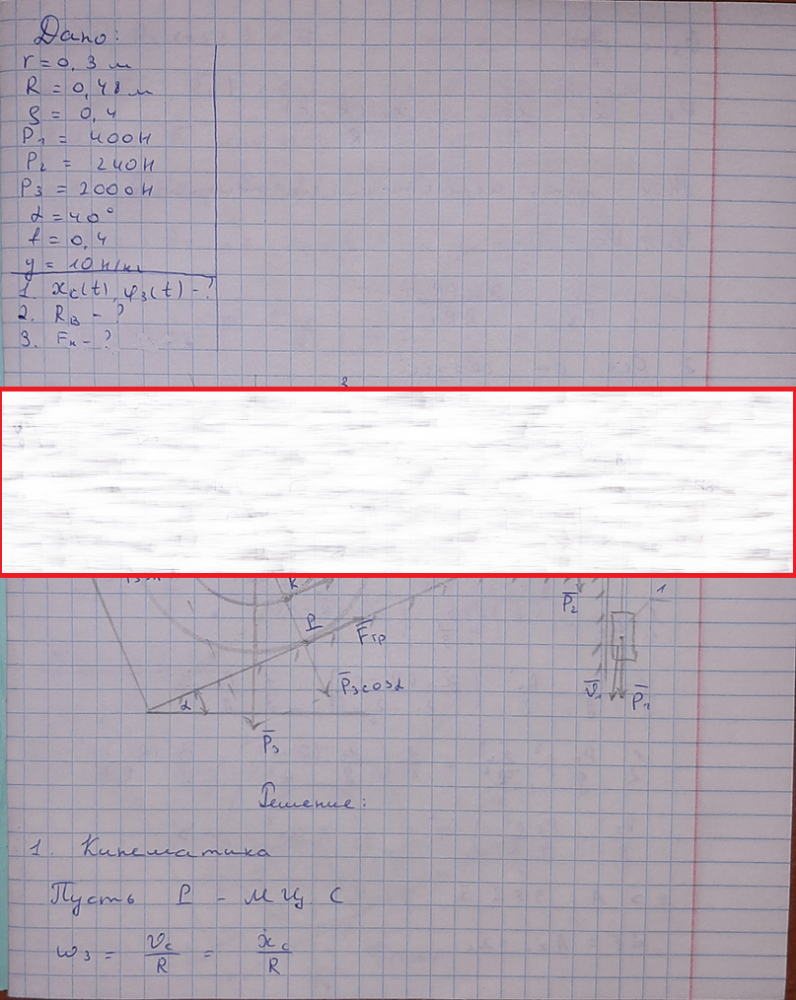 Дано:
r = 0,3 м
R = 0,48 м
ρ = 0,4
P₁ = 400Н
P₂ = 240Н
P₃ = 2000Н
α = 40°
f = 0,4
g = 10 Н/кг
1. xc(t), φ₃(t) - ?
2. RB - ?
3. Fн - ?
2
K
P
F̅тр
P̅₂
1
P̅₃cosα
ϑ̅₁
P̅₁
α
P̅₃
Решение:
1. Кинематика
Пусть P - МЦС
ω₃ = ϑc/R = ẋc/R